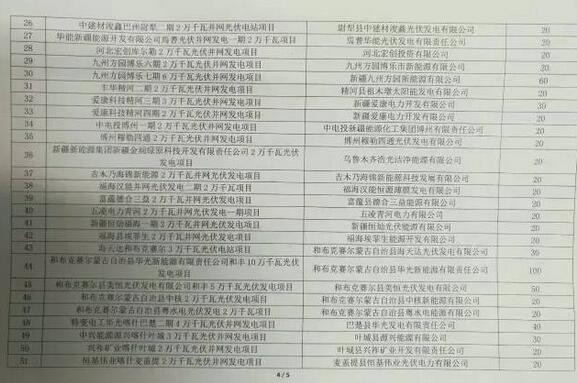 26 中建材浚鑫巴州尉犁二期2万千瓦并网光伏电站项目 尉犁县中建材浚鑫光伏发电有限公司 20
27 华能新疆能源开发有限公司焉耆光伏并网发电一期2万千瓦项目 焉耆华能光伏发电有限责任公司 20
28 河北宏创库尔勒2万千瓦光伏并网发电项目 河北宏创投资有限公司 20
29 九州方园博乐六期2万千瓦光伏并网发电项目 九州方园博乐市新能源有限公司 20
30 九州方园博乐七期6万千瓦光伏并网发电项目 新疆九州方园新能源有限公司 60
31 丰华精河二期2万千瓦光伏并网发电项目 精河县 太阳能发电有限公司 20
32 爱康科技精河三期3万千瓦光伏并网发电项目 新疆爱康电力开发有限公司 30
33 爱康科技精河四期2万千瓦光伏并网发电项目 新疆爱康电力开发有限公司 20
34 中电投博州一期2万千瓦光伏并网发电项目 中电投新疆能源化工集团博州有限责任公司 20
35 博州穆勒四通2万千瓦光伏并网发电项目 博州穆勒四通光伏发电有限公司 20
36 新疆新能源集团新疆金润绿原科技开发有限责任公司2万千瓦光伏
发电项目 乌鲁木齐浩光洁净能源有限公司 20
37 吉木乃海锦新能源2万千瓦并网光伏发电项目 吉木乃海锦新能源科技发展有限公司 20
38 福海汉能并网光伏发电二期2万千瓦项目 福海汉能恒源薄膜发电有限公司 20
39 富蕴德合三益2万千瓦光伏并网发电项目 富蕴县德合三益能源有限公司 20
40 五凌电力青河2万千瓦并网光伏发电一期项目 五凌青河电力有限公司 20
41 新疆恒灿福海一期2万千瓦光伏并网发电项目 新疆恒灿光伏能源有限公司 20
42 福海县埃菲生2万千瓦光伏并网发电项目 福海埃菲生能源开发有限公司 20
43 海天达和布克赛尔3万千瓦光伏发电站项目 和布克赛尔蒙古自治县海天达光伏发电有限公司 30
44 和布克赛尔蒙古自治县华光新能源有限责任公司和丰10万千瓦光伏
并网发电项目 和布克赛尔蒙古自治县华光新能源有限责任公司 100
45 和布克赛尔县美恒光伏发电有限公司和丰5万千瓦光伏发电项目 和布克赛尔县美恒光伏发电有限公司 50
46 和布克赛尔蒙古自治县中核2万千瓦光伏并网发电项目 和布克赛尔蒙古自治县中核新能源有限公司 20
47 和布克赛尔蒙古自治县粤水电光伏发电2万千瓦项目 和布克赛尔蒙古自治县粤水电能源有限公司 20
48 特变电工华光喀什巴楚二期4万千瓦光伏并网发电项目 巴楚县华光发电有限责任公司 40
49 中兴能源源兴喀什叶城3万千瓦光伏并网发电项目 叶城县源兴能源有限公司 30
50 兴祚矿业喀什叶城2万千瓦光伏并网发电项目 叶城兴祚矿业开发有限责任公司 20
51 恒基伟业麦盖提2万千瓦光伏并网发电项目 麦盖提县恒基伟业光伏电力有限公司 20
4 / 5